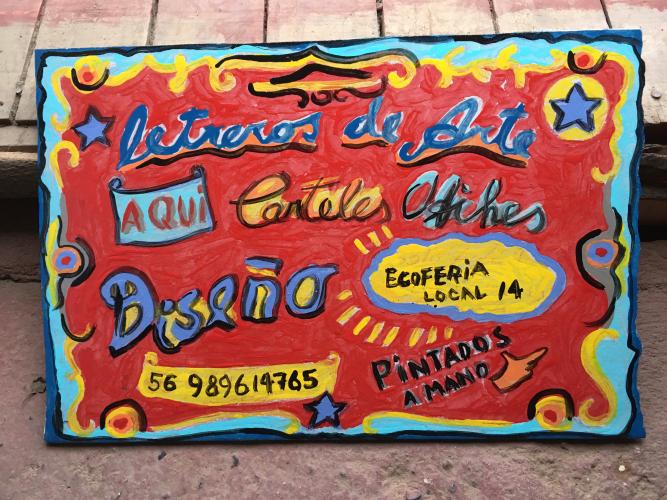 letreros de Arte
AQUÍ Carteles Afiches
Diseño
ECOFERIA
LOCAL 14
56 989614765
PINTADOS
A MANO